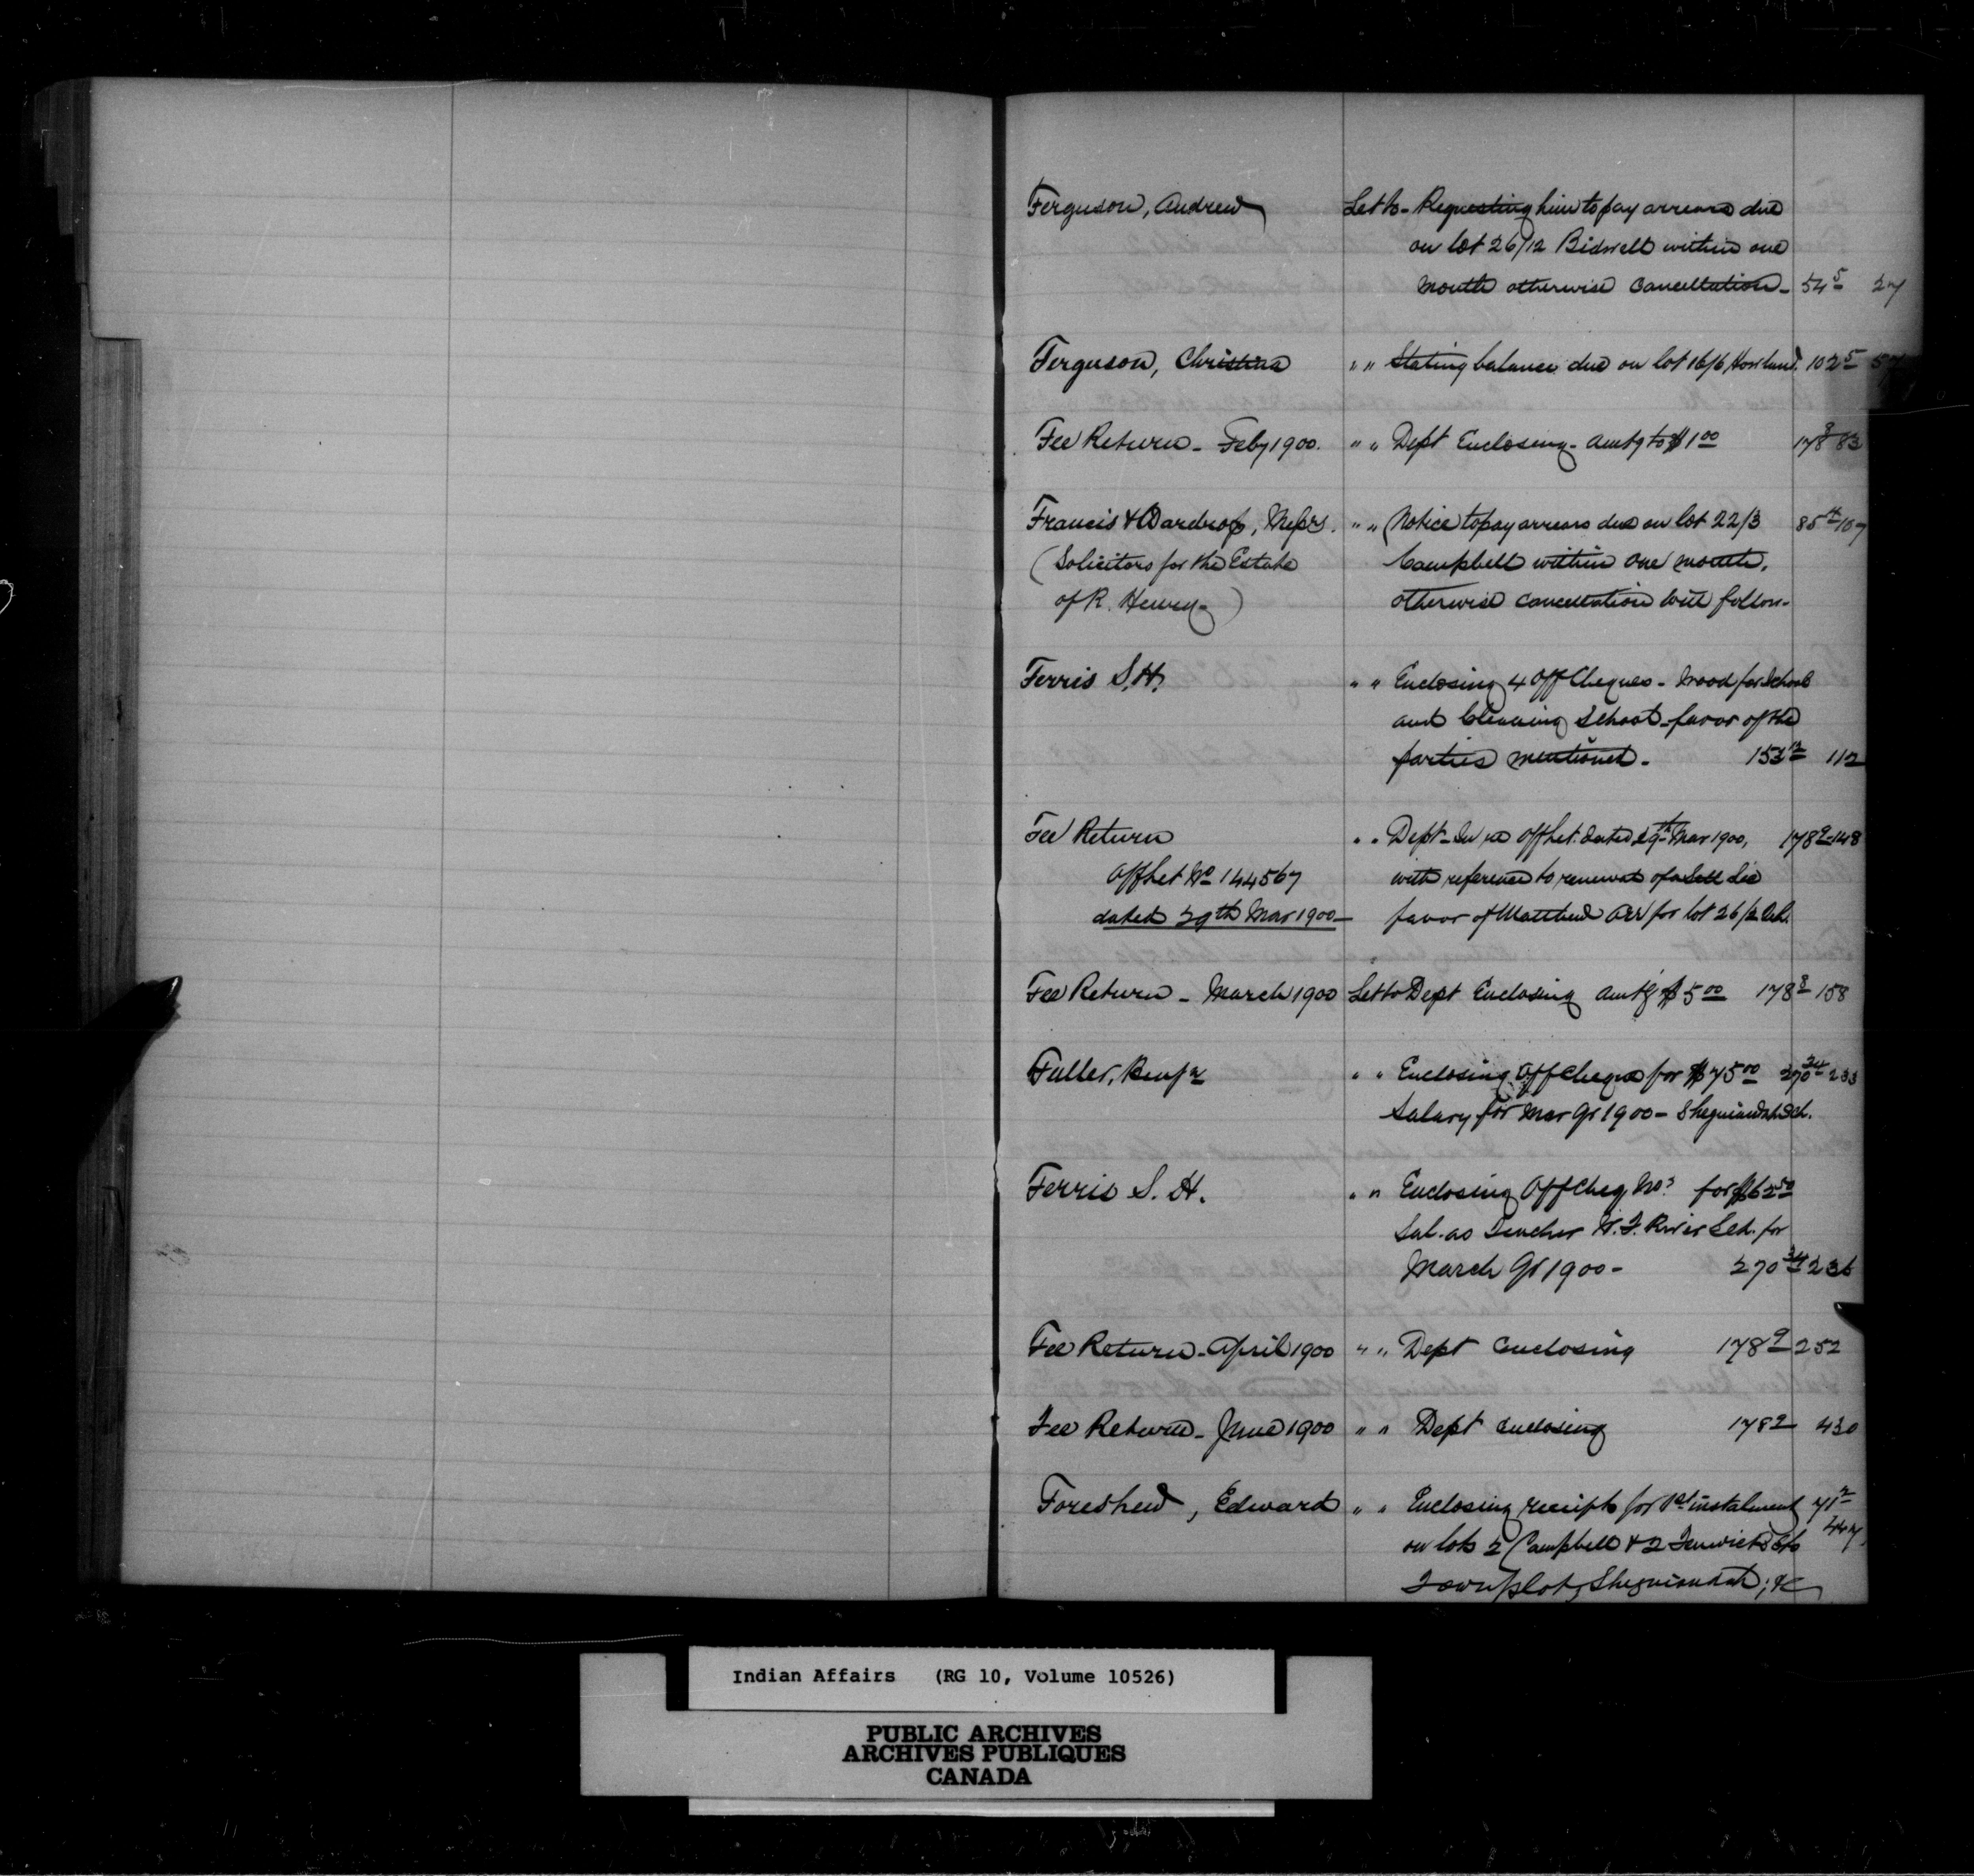 Ferguson, Andrew Let to - Requesting him to pay arrears due
on lot 26/12 Bidwell within one
month otherwise cancellation - 54 5 27
Ferguson, Christina " " Stating balance due on lot 16/6 Howland. 102 5
Fee Return - Feby 1900. " " Dept Enclosing - amtg to $1 00 178 83
Francis & Wardrop, Messrs. " " Notice to pay arrears due on lot 22/3 85 107
(Solicitors for the Estate Campbell within one month,
of R. Henry -) otherwise cancellation will follow -
Ferris S. H. " " Enclosing 4 Off Cheques - Wood for School
and Cleaning School - favor of the
parties mentioned - 153 12 112
Fee Return " " Dept - In re Off Let. dated 29th Mar 1900, 178 9 148
Off Let No 144567 with reference to renewal of a Sett Lic
dated 29th Mar 1900 - favor of Matthew Orr for lot 26/12
Fee Return - March 1900 Let to Dept Enclosing amtg $5 00 178 9 158
Fuller, Benjn " " Enclosing Off Cheque for $75 00 270 34 233
Salary for Mar Qr 1900 - Sheguiandah Sch.
Ferris S. H. " " Enclosing Off Cheq No? for $62 50
Sal. as Teacher W. F. River Sch. for
March Qr 1900 - 270 34 236
Fee Return - April 1900 " " Dept enclosing 178 9 252
Fee Return - June 1900 " " Dept enclosing 178 9 430
Foreshew, Edward " " Enclosing receipts for 1st instalment 71 2
on lots 2 Campbell & 2 Fenwick Sts 447
Townplot, Sheguiandah, &c
Indian Affairs (RG 10, Volume 10526)
PUBLIC ARCHIVES
ARCHIVES PUBLIQUES
CANADA